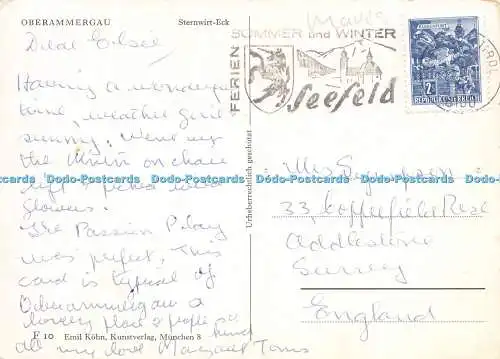 OBERAMMERGAU Sternwirt-Eck
Dear Elsie
Having a wonderful
time, weather good
sunny. Went up
the on chair
lift picked wild
flowers.
The Passion Play
was perfect. This
card is typical of
Oberammergau a
lovely place & people so
kind
all my love Margaret Tom
F 10 Emil Köhn, Kunstverlag, München 8
Urheberrechtlich geschützt
FERIEN
SOMMER und WINTER
Seefeld
2 S
REPUBLIK ÖSTERREICH
6100
Mrs
33,
Addlestone
Surrey
England
Dodo-Postcards Dodo-Postcards Dodo-Postcards Dodo-Postcards Dodo-Postcards Dodo-Postcards